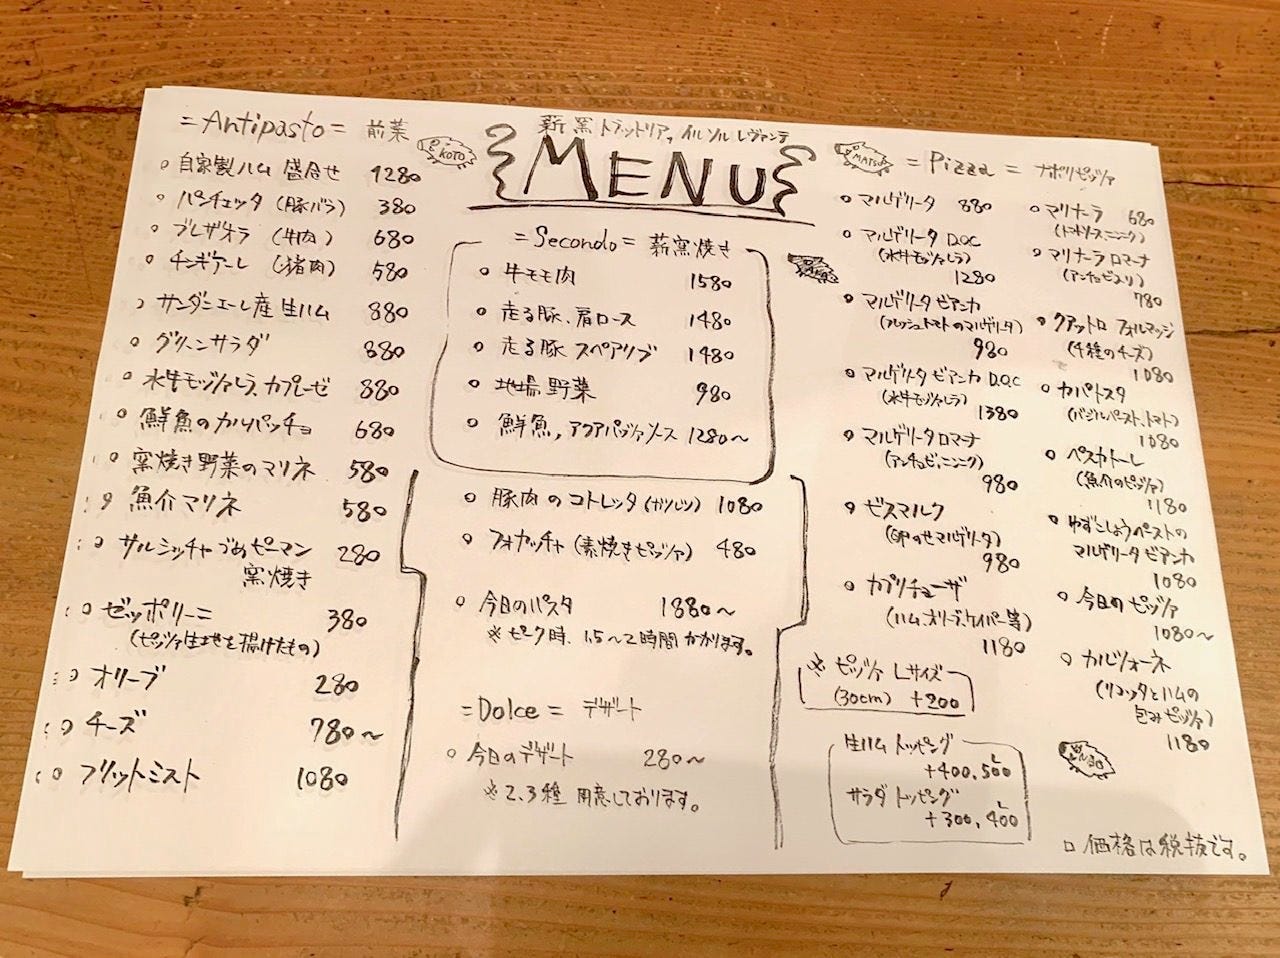 =Antipasto= 前菜
KOTO
自家製ハム 盛合せ 1280
パンチェッタ (豚バラ) 380
ブレザオラ (牛肉) 680
チンギアーレ (猪肉) 580
サンダニエーレ産 生ハム 880
グリーンサラダ 880
水牛モッツァレラ、カプレーゼ 880
鮮魚のカルパッチョ 680
窯焼き野菜のマリネ 580
魚介マリネ 580
サルシッチャづめピーマン 280
窯焼き
ゼッポリーニ 380
(ピッツァ生地を揚げたもの)
オリーブ 280
チーズ 780〜
フリットミスト 1080
薪窯トラットリア、イルソルレヴァンテ
MENU
=Secondo= 薪窯焼き
牛モモ肉 1580
走る豚、肩ロース 1480
走る豚 スペアリブ 1480
地場野菜 980
鮮魚、アクアパッツァソース 1280〜
豚肉のコトレッタ(カツレツ) 1080
フォカッチャ (素焼きピッツァ) 480
今日のパスタ 1880〜
※ピーク時、1.5〜2時間かかります。
=Dolce= デザート
今日のデザート 280〜
※2、3種 用意しております。
MATSU
=Pizza= ナポリピッツァ
マルゲリータ 880
マルゲリータ D.O.C
(水牛モッツァレラ)
1280
マルゲリータ ビアンカ
(フレッシュトマトのマルゲリータ)
980
マルゲリータ ビアンカ D.O.C
(水牛モッツァレラ)
1380
マルゲリータ ロマーナ
(アンチョビ、ニンニク)
980
ビスマルク
(卵のせマルゲリータ)
980
カプリチョーザ
(ハム、オリーブ、ケイパー等)
1180
※ピッツァ Lサイズ
(30cm) +200
生ハム トッピング
L
+400,500
サラダ トッピング
L
+300,400
マリナーラ 680
(トマトソース、ニンニク)
マリナーラ ロマーナ
(アンチョビ入り)
780
クアットロ フォルマッジ
(4種のチーズ)
1080
カパトスタ
(バジルペースト、トマト)
1080
ペスカトーレ
(魚介のピッツァ)
1180
ゆずこしょうペーストの
マルゲリータ ビアンカ
1080
今日のピッツァ
1080〜
カルツォーネ
(リコッタとハムの
包みピッツァ)
1180
□ 価格は税抜です。